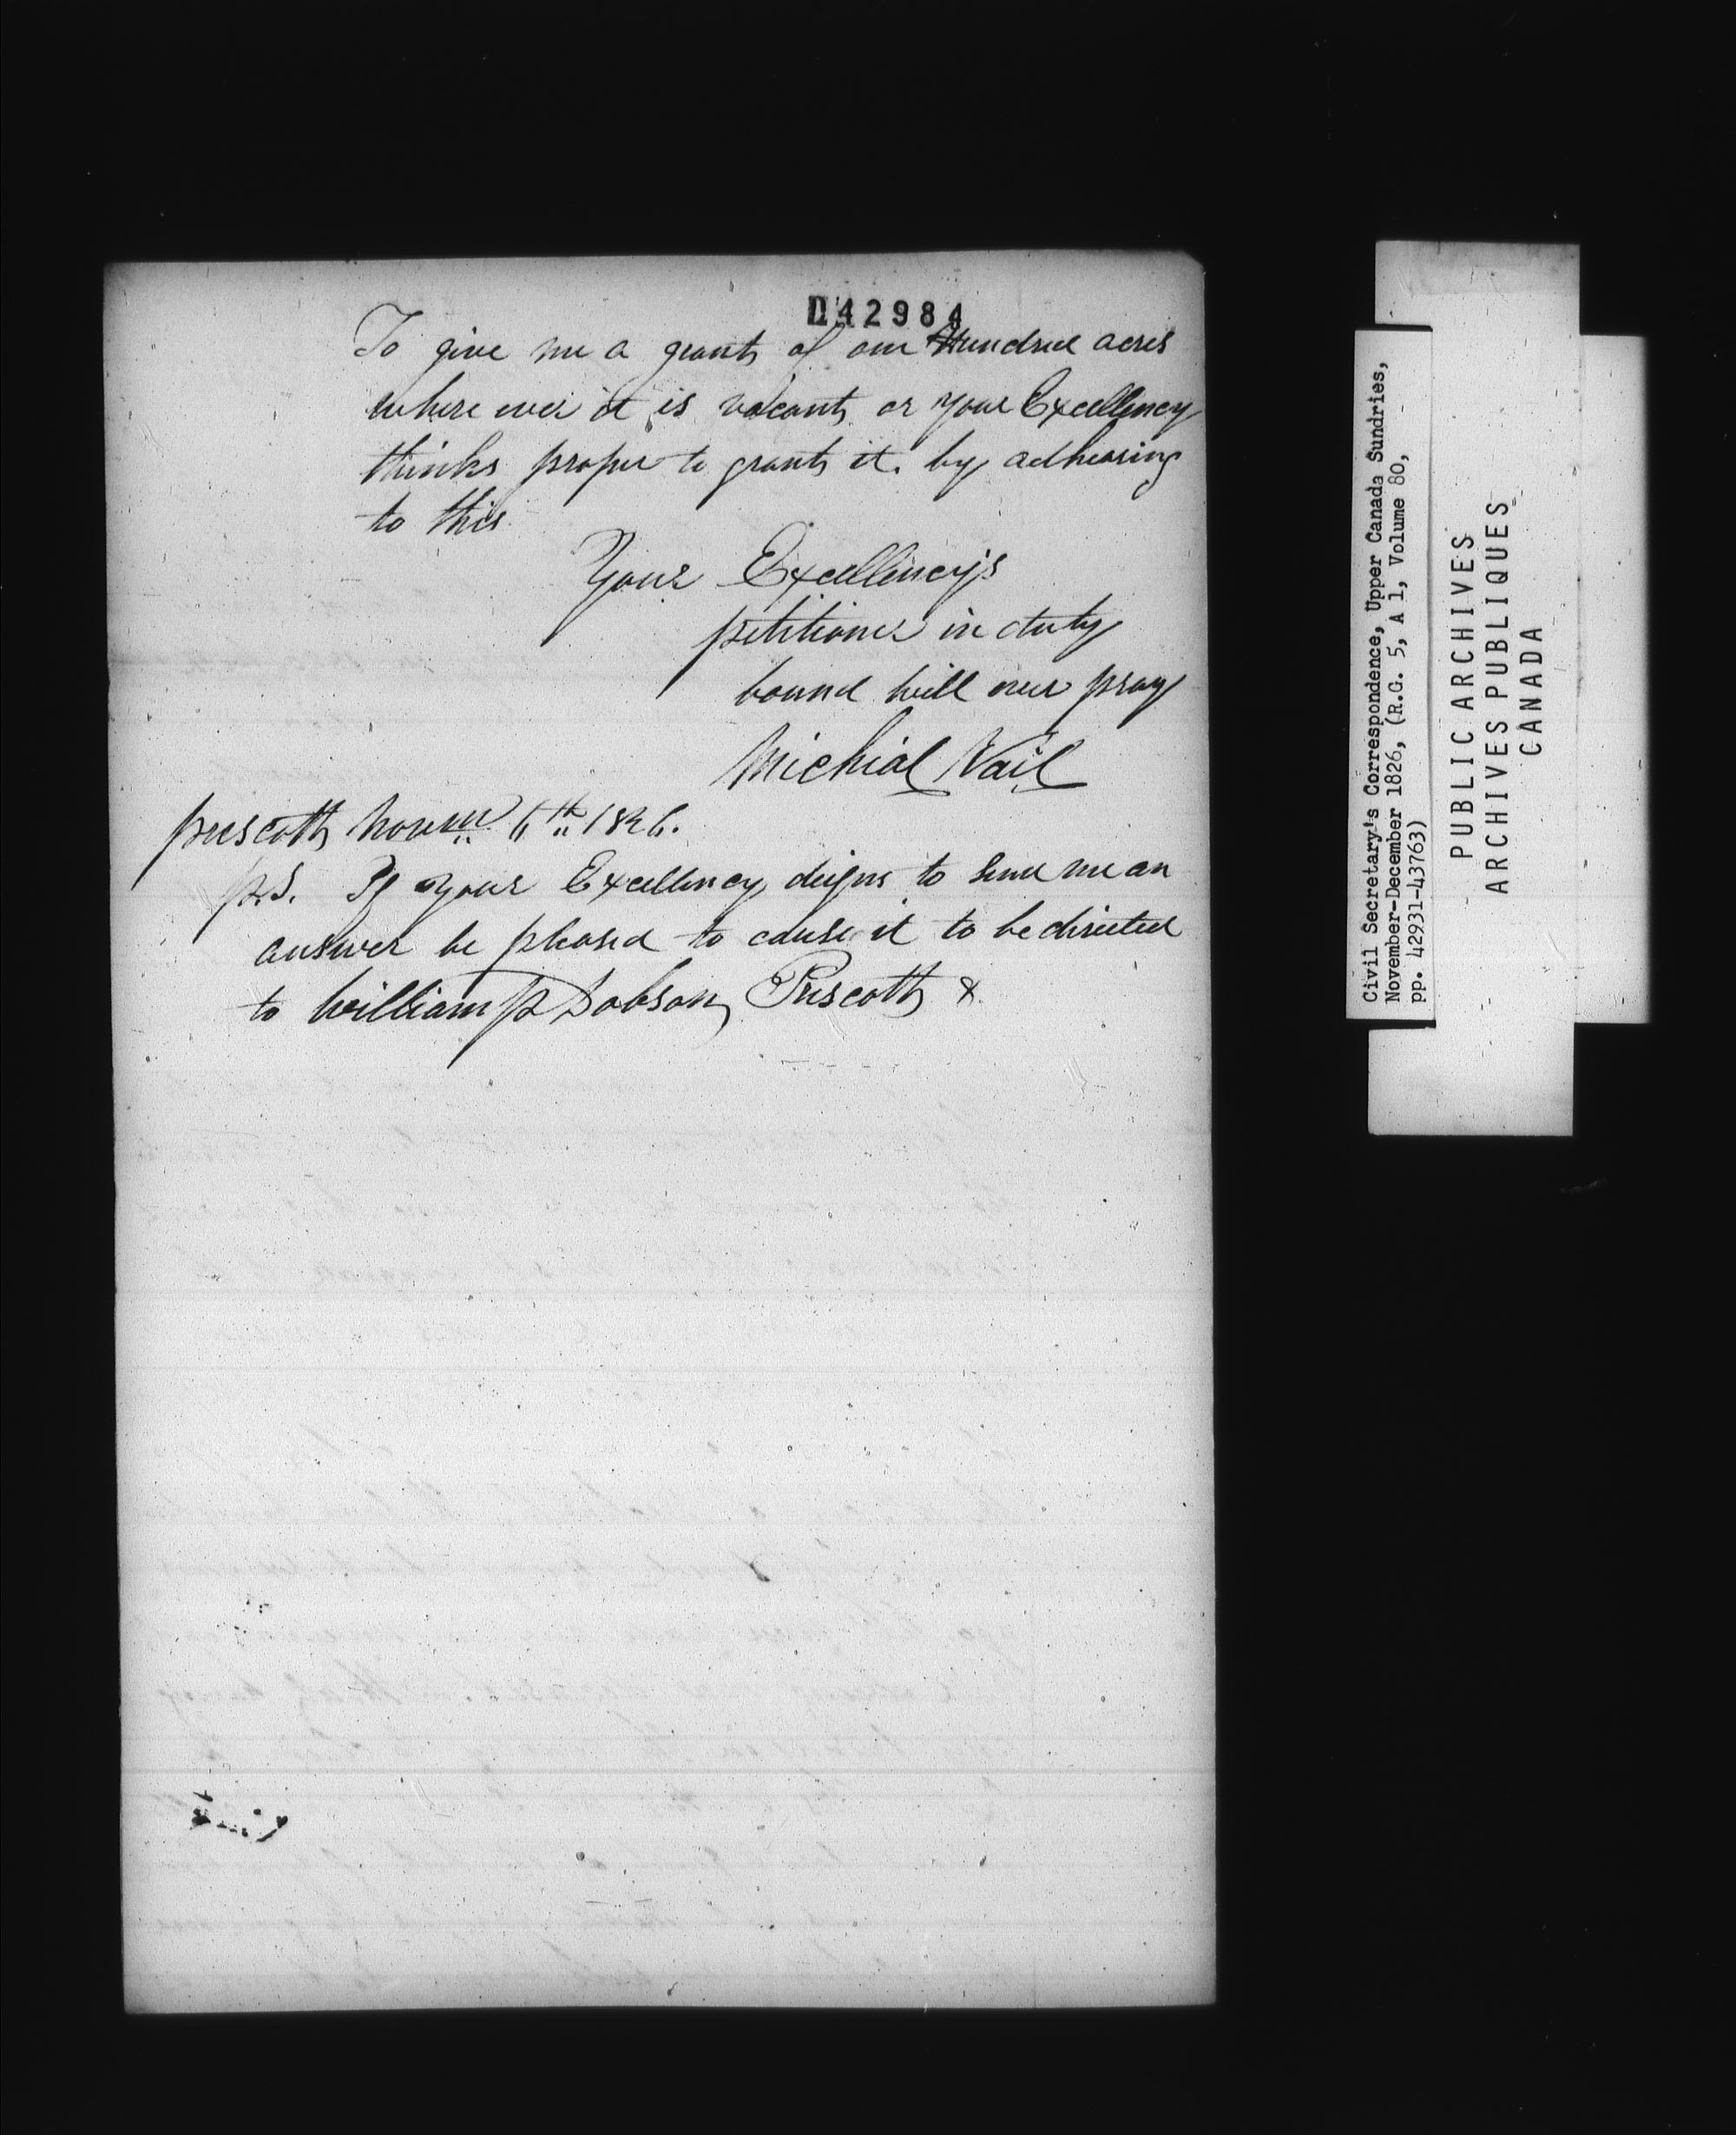 042984
To give me a grant of one Hundred acres
where ever it is vacant or your Excellency
thinks proper to grant it. by adhearing
to this
Your Excellency's
petitioner in duty
bound will ever pray
Michial Nail
prescott 6th 1826.
p.S. If your Excellency deigns to send me an
answer be pleased to cause it to be directed
to William Dobson, Prescott &
Civil Secretary's Correspondence, Upper Canada Sundries,
November-December 1826, (R.G. 5, A 1, Volume 80,
pp. 42931-43763)
PUBLIC ARCHIVES
ARCHIVES PUBLIQUES
CANADA